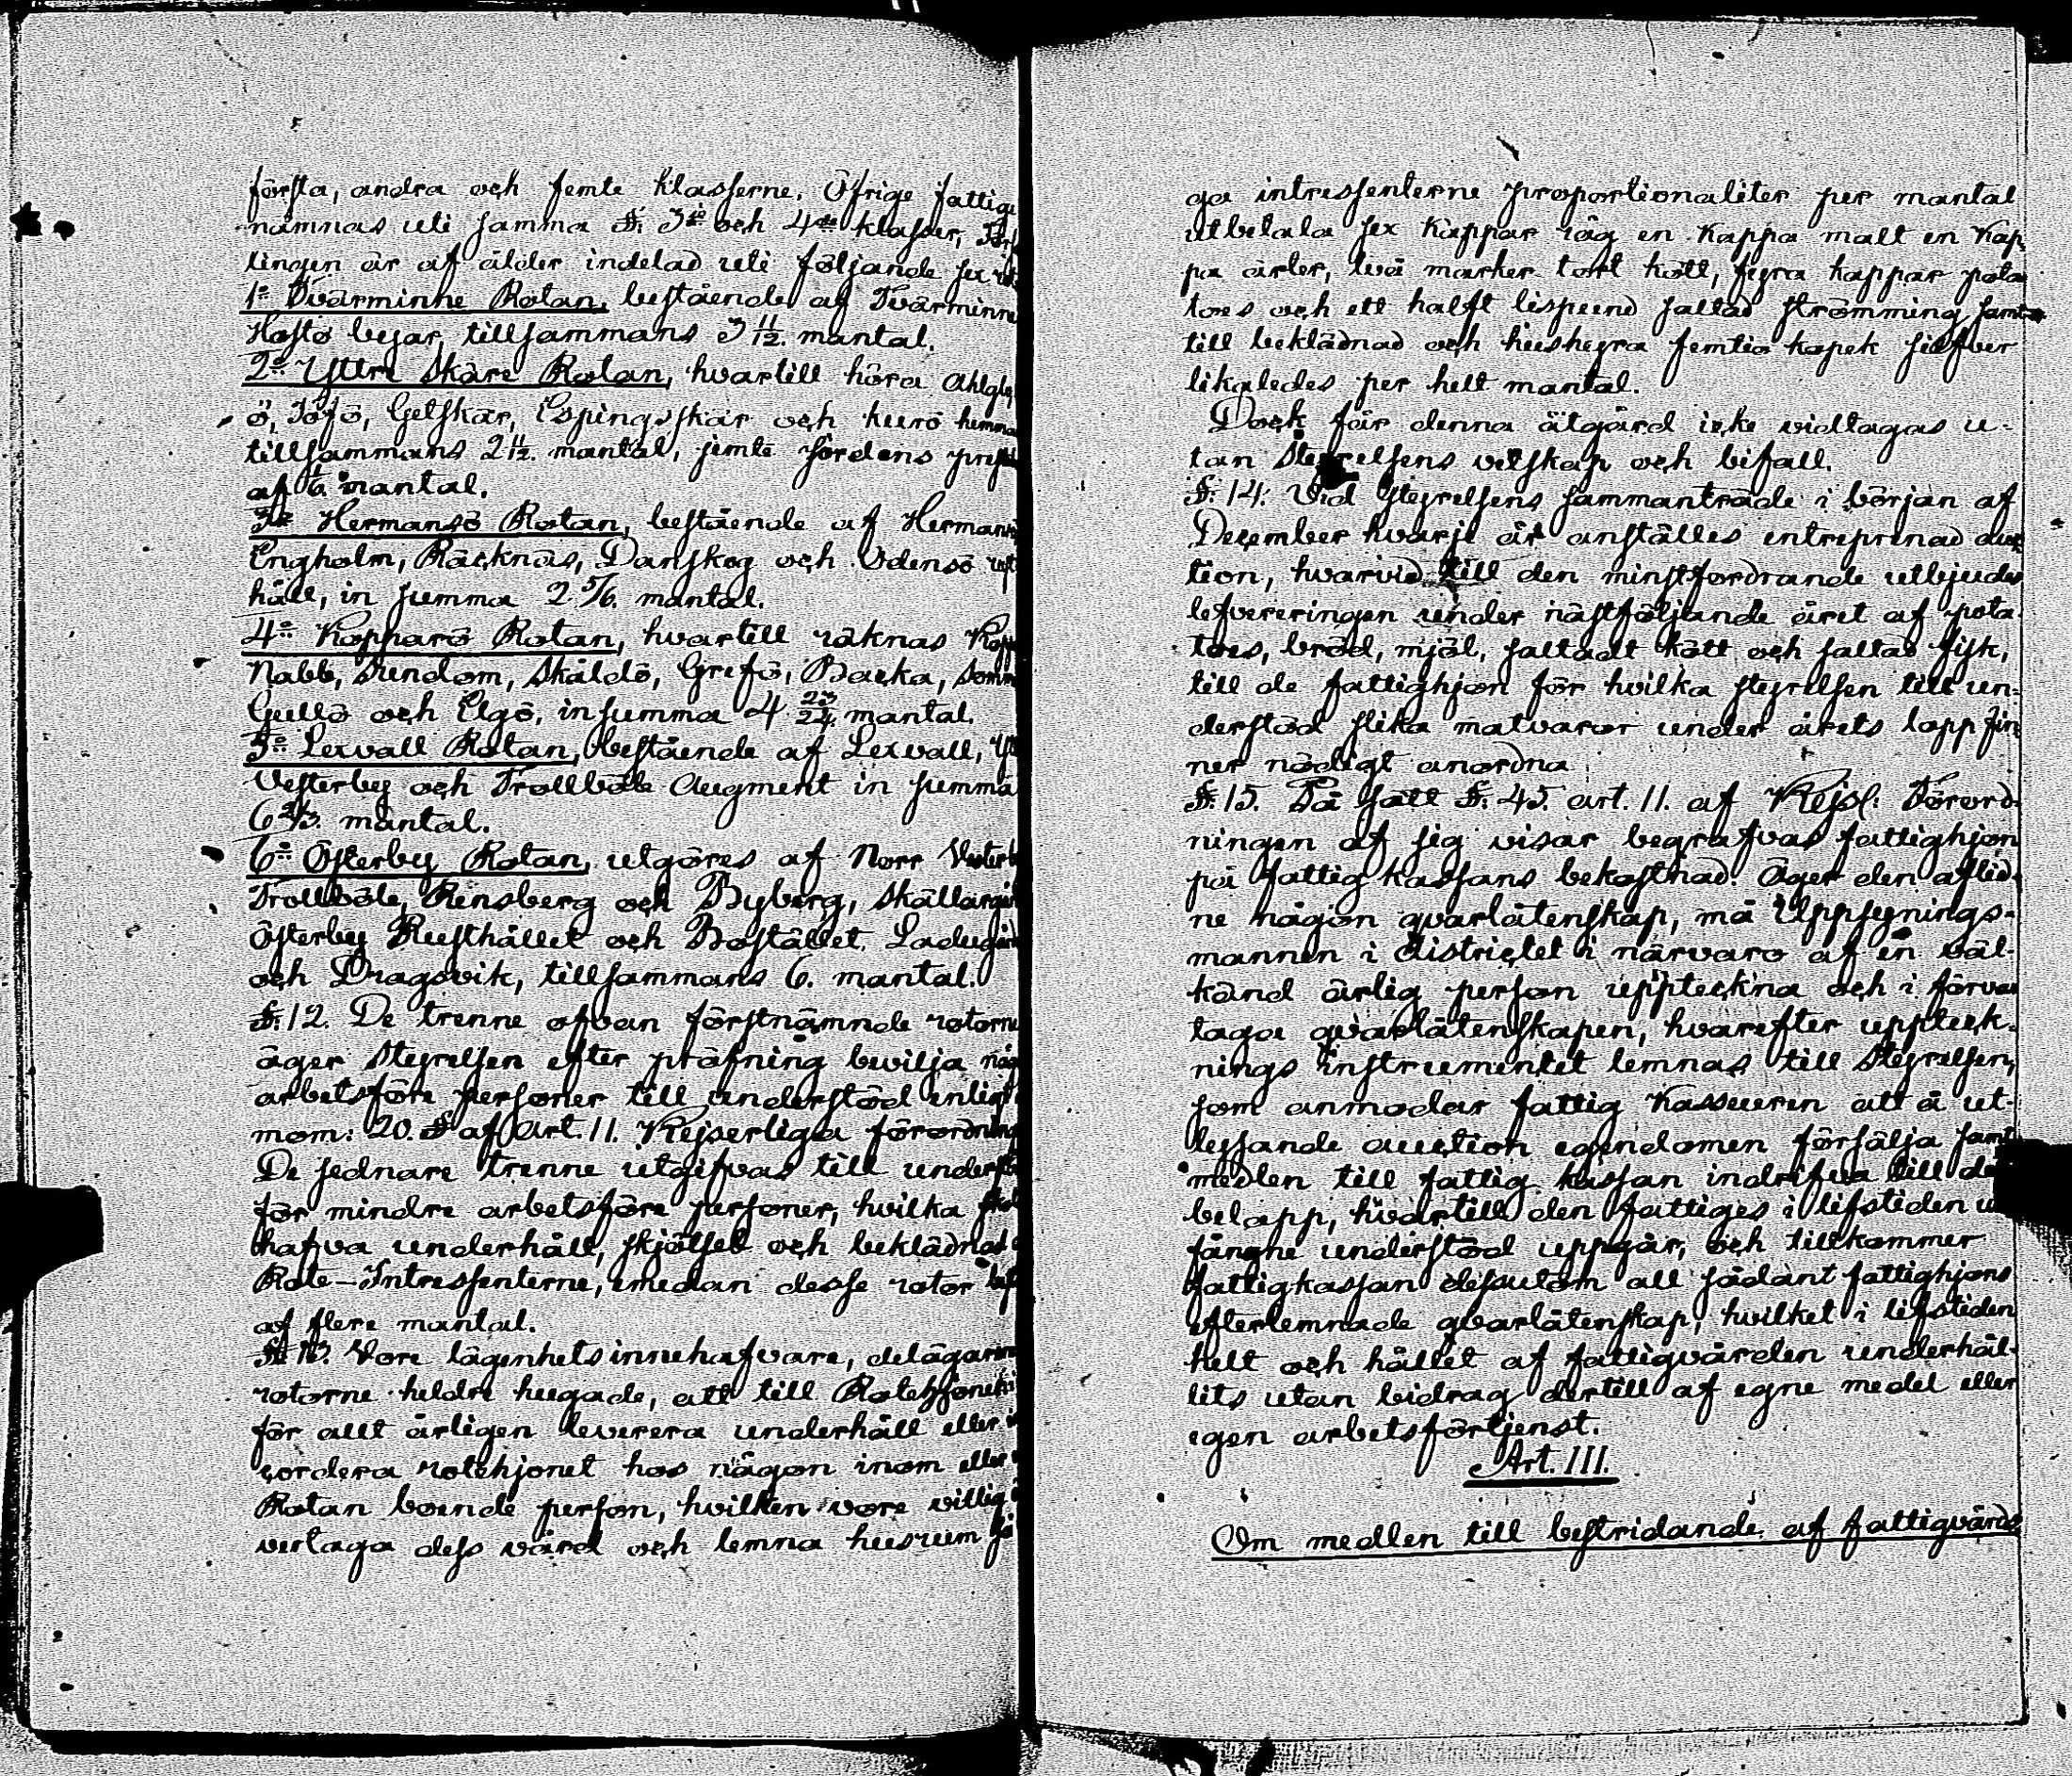 första, andra och femte klasserne. Öfrige fattige
nämnas uti samma §. 3:e och 4:de klasser,
lingen är af ålder indelad uti följande sex
1:o Tvärminne Rotan, bestående af Tvärminne
Hostö byar tillsammans 3 11/12. mantal.
2:o Yttre Skärs Rotan, hvartill höra
ö, Jöfö, Getskär, Espingsskär och Kurö
tillsammans 2 11/12. mantal, jemte Jordens
af 1/6. mantal.
3:o Hermansö Rotan, bestående af Hermans
Engholm, Räcknäs, Danskog och Odensö
håll, in summa 2 5/6. mantal.
4:o Kopparö Rotan, hvartill räknas Kopp
Nabb, Sundom, Skåldö, Grefö, Backa,
Gullö och Elgö, insumma 4 23/24 mantal.
5:o Lexvall Rotan, bestående af Lexvall,
Vesterby och Trollböle Augment in summa
6 2/3. mantal.
6:o Österby Rotan, utgöres af Norr Vesterb
Trollböle, Rensberg och Byberg, Skällarg
Österby Rusthållet och Bostället, Ladugård
och Dragsvik, tillsammans 6. mantal.
§. 12. De trenne ofvan förstnämnde rotorne
äger Styrelsen efter pröfning bevilja
arbetsföre personer till understöd enligt
mom: 20. § af Art. 11. Kejserliga förordning
De sednare trenne utgifvas till underst
för mindre arbetsföre personer, hvilka
hafva underhåll, skjötsel och beklädnad
Rote-Intressenterne, emedan desse rotor
af flere mantal.
§. 13. Vore lägenhetsinnehafvare, delägarne
rotorne heldre hugade, att till Rotehjonet
för allt årligen leverera underhåll eller
cordera rotehjonet hos någon inom eller
Rotan boende person, hvilken vore villig
vertaga dess vård och lemna husrum
ga intressenterne proportionaliter per mantal
utbetala sex kappar råg en kappa malt en kap
pa ärter, två marker tort kött, fyra kappar pota
toes och ett halft lispund saltad strömming samt
till beklädnad och hushyra femtio kopek silfver
likaledes per helt mantal.
Dock får denna åtgärd icke vidtagas u-
tan Styrelsens vetskap och bifall.
§. 14. Vid Styrelsens sammanträde i början af
December hvarje år anställes entreprenad auc
tion, hvarvid till den minstfordrande utbjudes
lefvereringen under nästföljande året af pota
toes, bröd, mjöl, saltadt kött och saltad fisk,
till de fattighjon för hvilka styrelsen till un-
derstöd slika matvaror under årets lopp fin
ner nödigt anordna
§. 15. På sätt §. 45. art. 11. af Kejsl. Förord-
ningen af sig visar begrafvas fattighjon
på fattig kassans bekostnad. Äger den aflid-
ne någon qvarlåtenskap, må Uppsynings-
mannen i districtet i närvaro af en väl-
känd ärlig person uppteckna och i förvar
taga qvarlåtenskapen, hvarefter uppteck-
nings instrumentet lemnas till Styrelsen,
som anmodar fattig kasseuren att å ut-
lysande auction egendomen försälja samt
medlen till fattig kassan indrifva till det
belopp, hvartill den fattiges i lifstiden
fångne understöd uppgår, och tillkommer
fattigkassan dessutom all sådant fattighjons
efterlemnade qvarlåtenskap, hvilket i lifstiden
helt och hållet af fattigvården underhål-
lits utan bidrag dertill af egne medel eller
egen arbetsförtjenst.
Art. III.
Om medlen till bestridande af fattigvårds